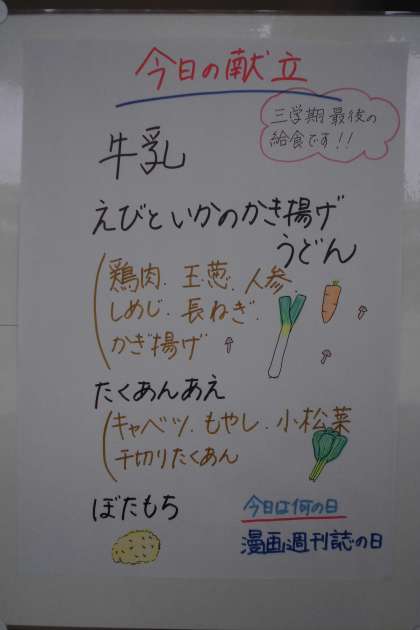 今日の献立
三学期最後の
給食です!!
牛乳
えびといかのかき揚げ
うどん
(鶏肉.玉葱.人参.
しめじ.長ねぎ.
かき揚げ
たくあんあえ
(キャベツ.もやし.小松菜
千切りたくあん
ぼたもち
今日は何の日
漫画週刊誌の日